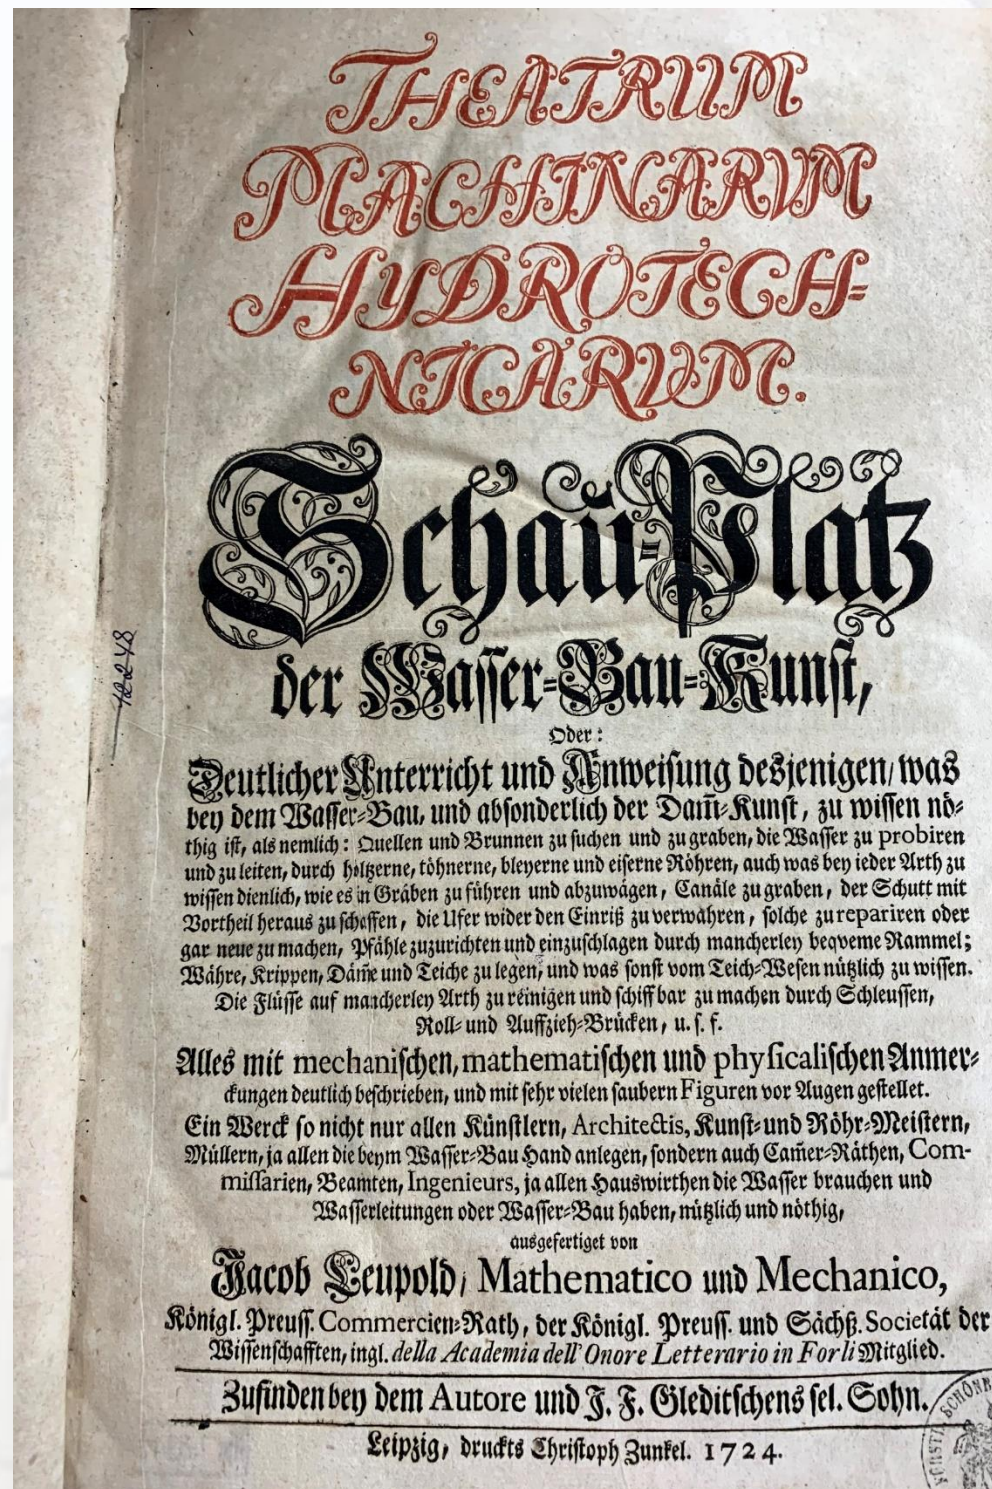 THEATRUM
MACHINARVM
HYDROTECH=
NICARUM.
Schau=Platz
der Wasser=Bau=Kunst,
Oder:
Deutlicher Unterricht und Anweisung desjenigen/ was
bey dem Wasser=Bau, und absonderlich der Dam̅=Kunst, zu wissen nö=
thig ist, als nemlich: Quellen und Brunnen zu suchen und zu graben, die Wasser zu probiren
und zu leiten, durch höltzerne, töhnerne, bleyerne und eiserne Röhren, auch was bey ieder Arth zu
wissen dienlich, wie es in Gräben zu führen und abzuwägen, Canäle zu graben, der Schutt mit
Vortheil heraus zu schaffen, die Ufer wider den Einriß zu verwahren, solche zu repariren oder
gar neue zu machen, Pfähle zuzurichten und einzuschlagen durch mancherley beqveme Rammel;
Währe, Krippen, Däm̅e und Teiche zu legen, und was sonst vom Teich=Wesen nützlich zu wissen.
Die Flüsse auf mancherley Arth zu reinigen und schiffbar zu machen durch Schleussen,
Roll= und Auffzieh=Brücken, u. s. f.
Alles mit mechanischen, mathematischen und physicalischen Anmer=
ckungen deutlich beschrieben, und mit sehr vielen saubern Figuren vor Augen gestellet.
Ein Werck so nicht nur allen Künstlern, Architectis, Kunst= und Röhr=Meistern,
Müllern, ja allen die beym Wasser=Bau Hand anlegen, sondern auch Cam̅er=Räthen, Com-
missarien, Beamten, Ingenieurs, ja allen Hauswirthen die Wasser brauchen und
Wasserleitungen oder Wasser=Bau haben, nützlich und nöthig,
ausgefertiget von
Jacob Leupold/ Mathematico und Mechanico,
Königl. Preuss. Commercien=Rath, der Königl. Preuss. und Sächß. Societät der
Wissenschafften, ingl. della Academia dell' Onore Letterario in Forli Mitglied.
Zufinden bey dem Autore und J. F. Gleditschens sel. Sohn.
Leipzig, druckts Christoph Zunkel. 1724.
12248